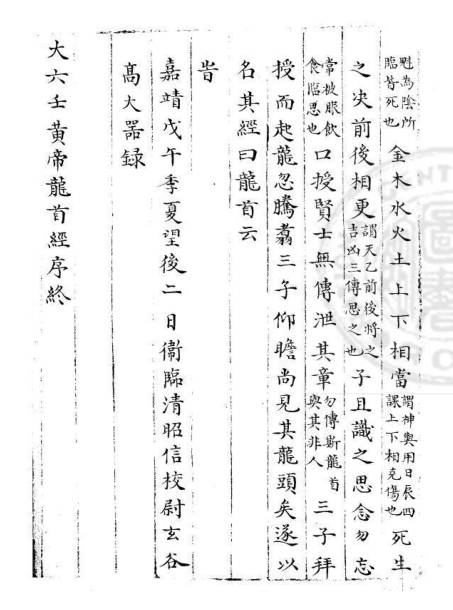 魁為陰所臨皆死也金木水火土上下相當謂神與用日辰四課上下相克傷也死生
之决前後相更謂天乙前後將之吉凶三傳思之也子且識之思念勿忘
常披服飲食臨思也口授賢士無傳泄其章勿傳斯龍首與其非人三子拜
授而起龍忽騰翥三子仰瞻尚見其龍頭矣遂以
名其經曰龍首云
旹
嘉靖戊午季夏望後二日衞臨清昭信校尉玄谷
高大器録
大六壬黃帝龍首經序終